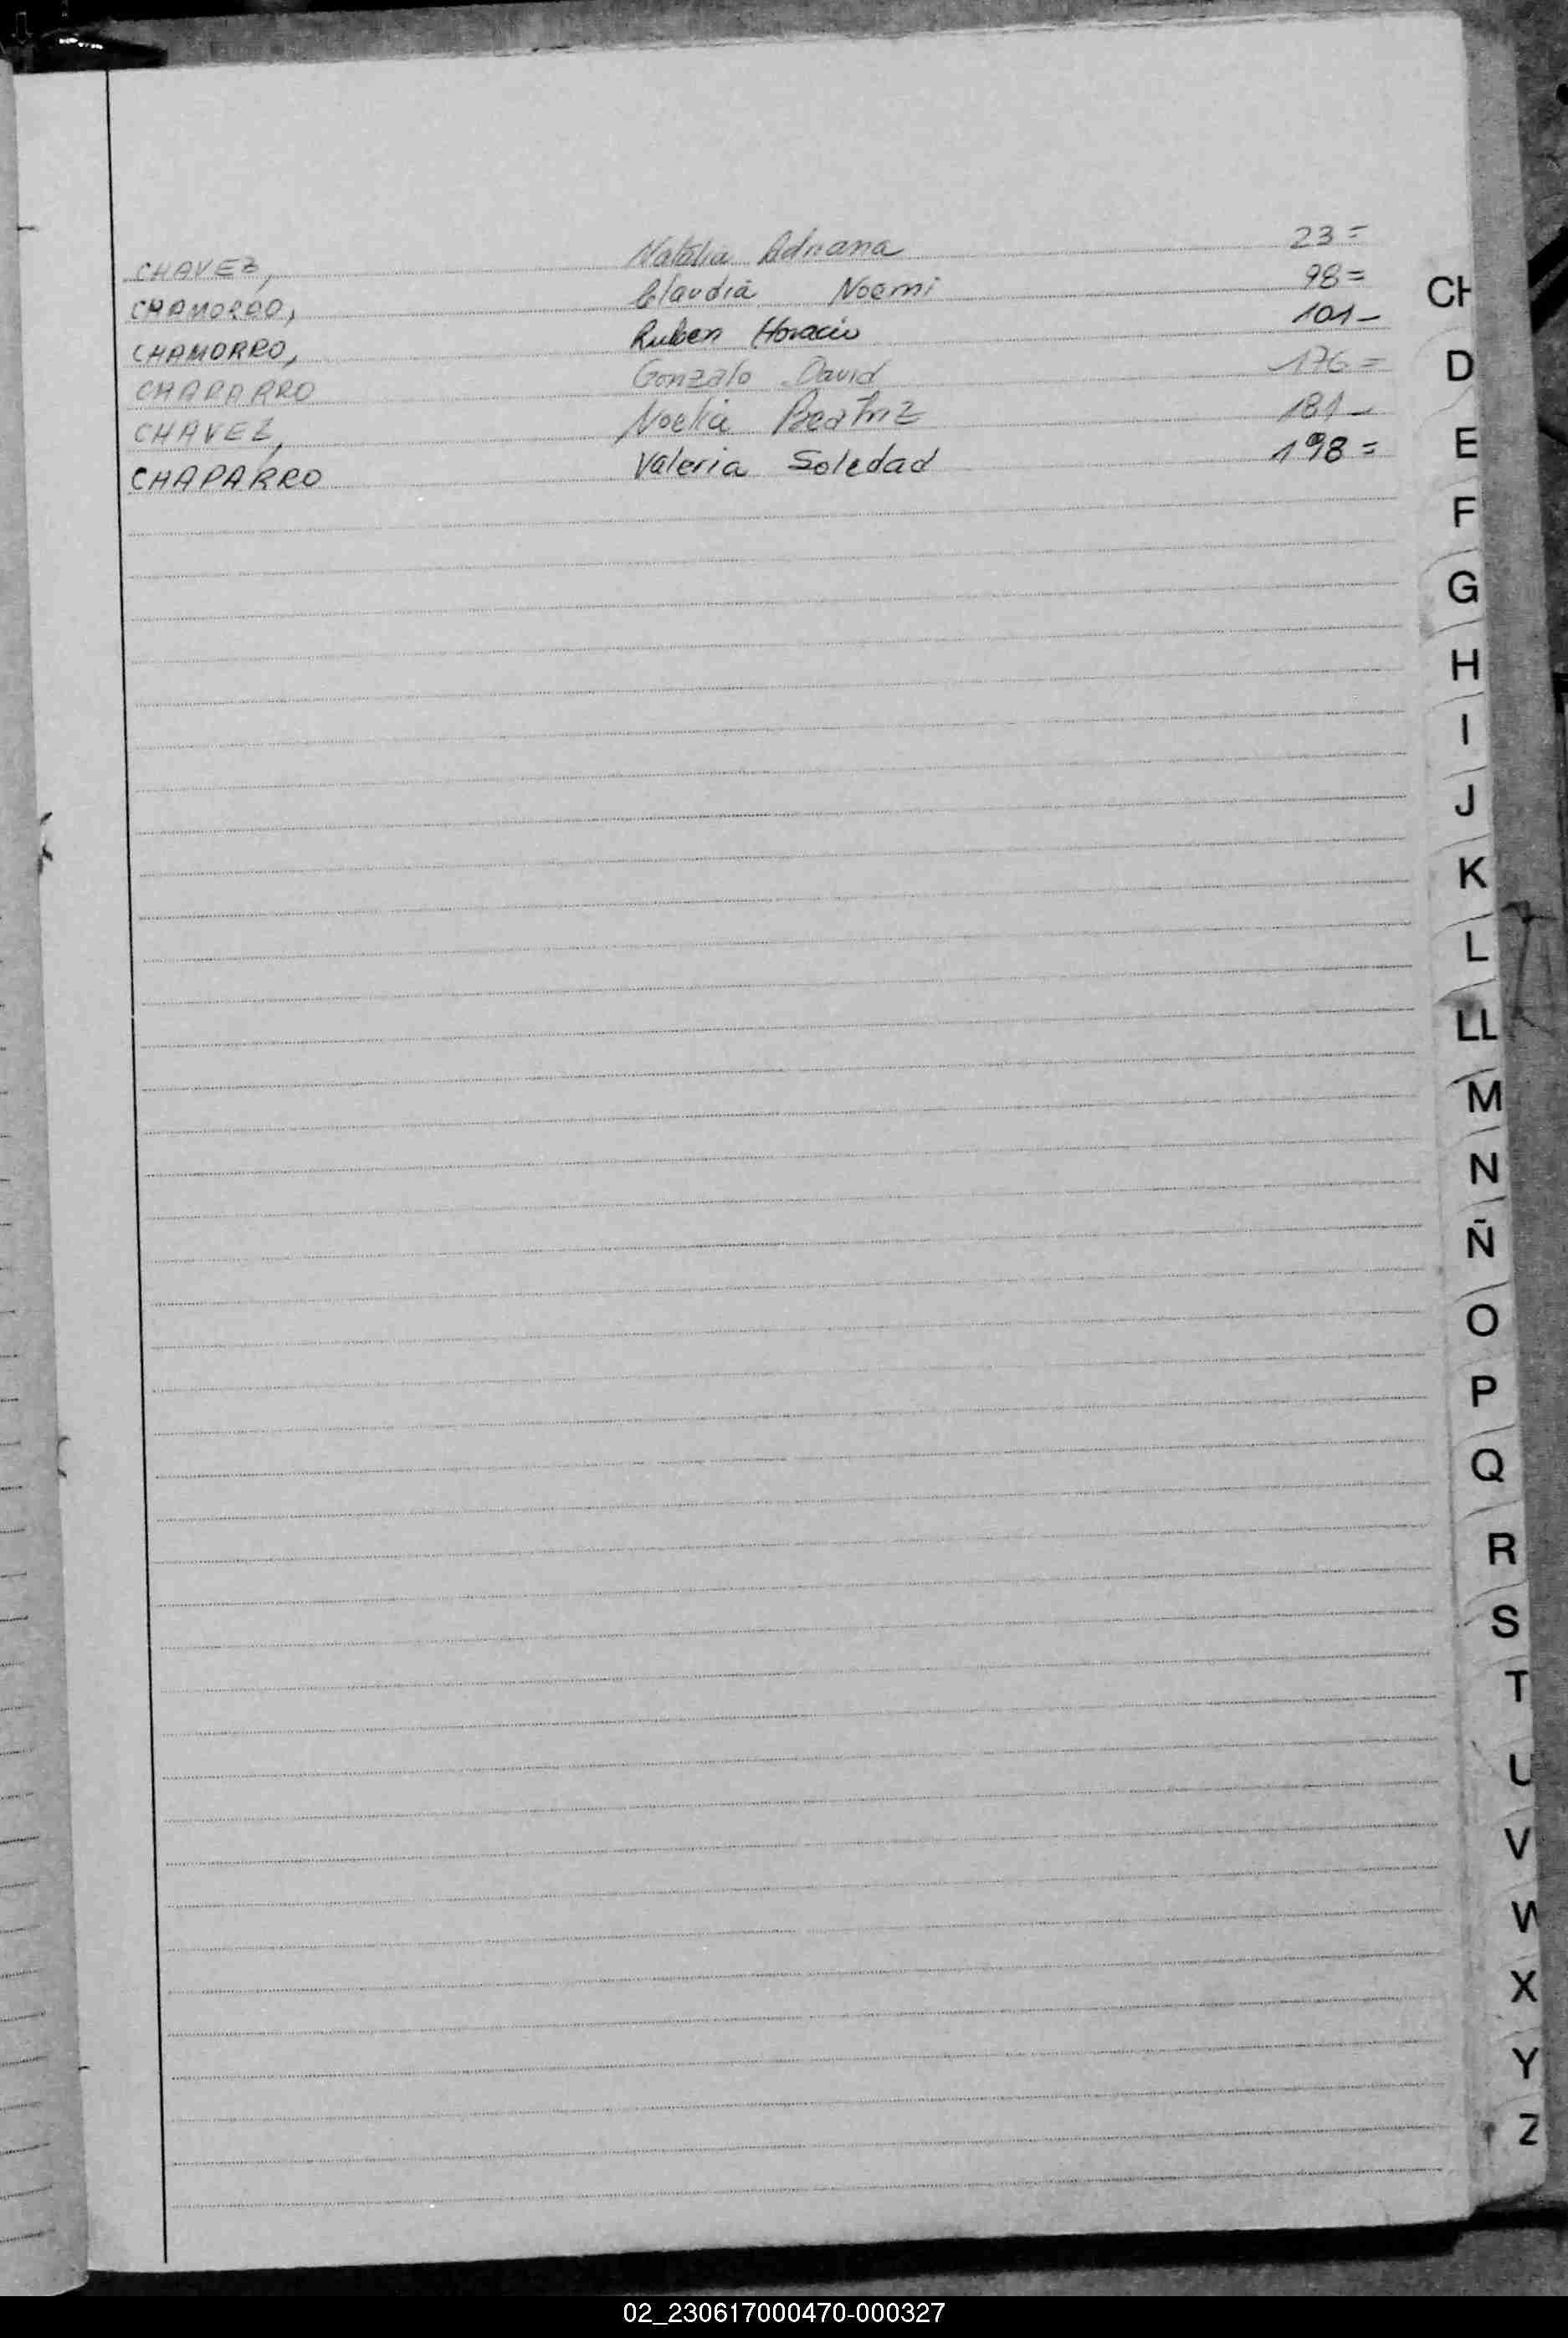 CHAVEZ, Natalia Adriana 23=
CHAMORRO, Claudia Noemi 98=
CHAMORRO, Ruben Horacio 101-
CHAPARRO Gonzalo David 176=
CHAVEZ, Noelia Beatriz 181-
CHAPARRO Valeria Soledad 198=
CH
D
E
F
G
H
I
J
K
L
LL
M
N
Ñ
O
P
Q
R
S
T
U
V
W
X
Y
Z
02_230617000470-000327